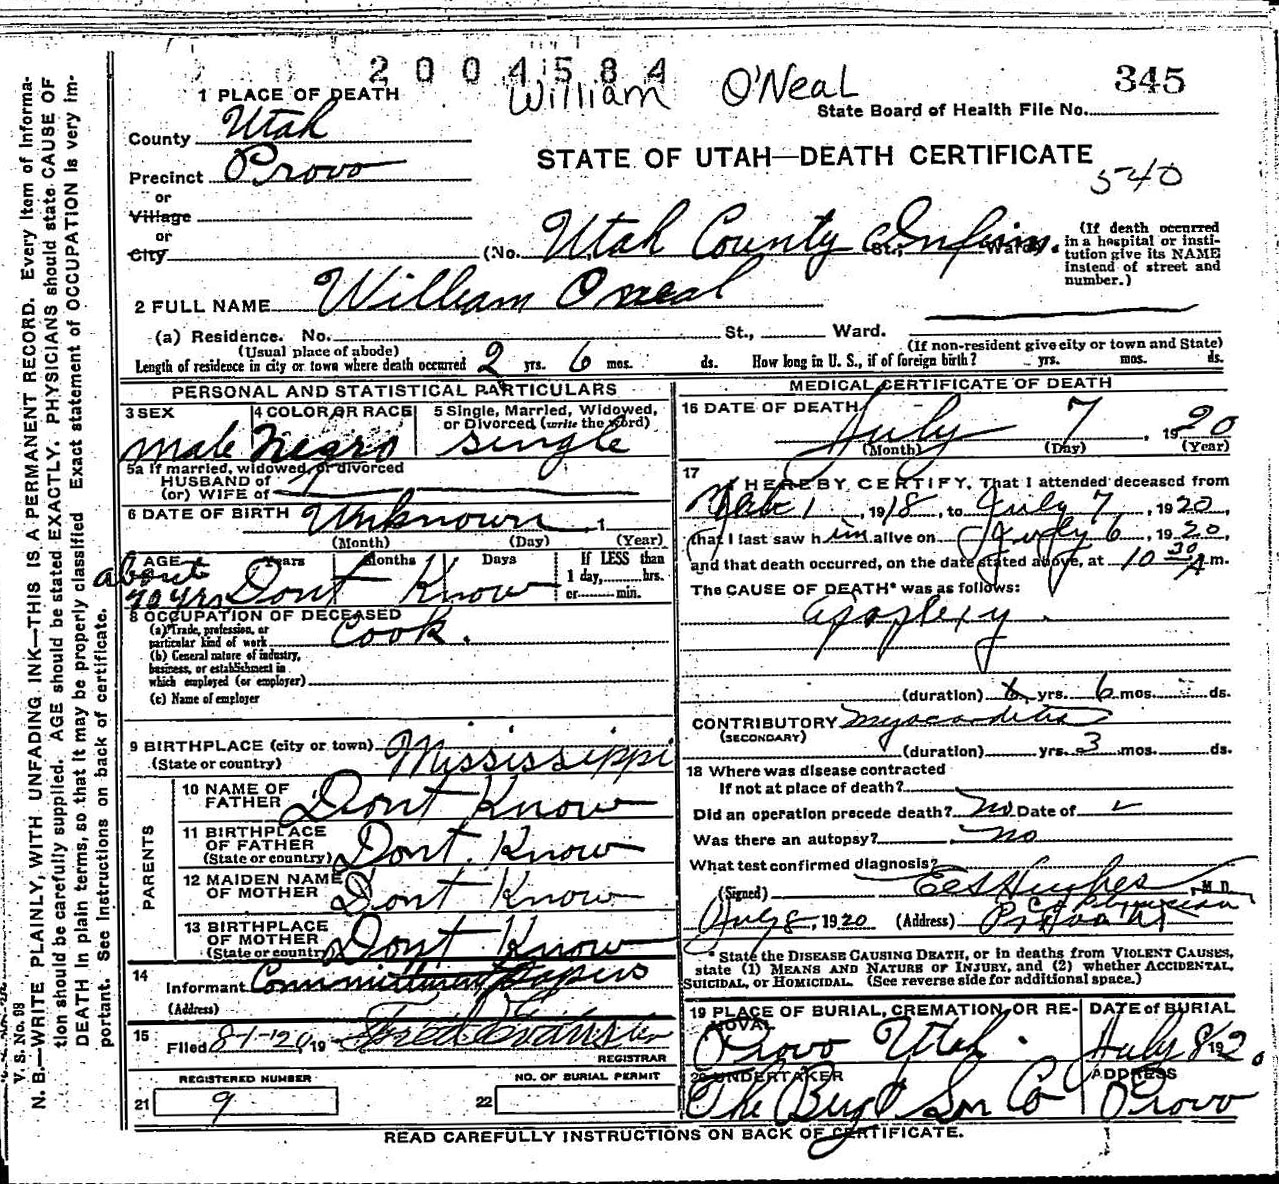 2004584
William O'Neal
345
State Board of Health File No.
1 PLACE OF DEATH
County Utah
STATE OF UTAH—DEATH CERTIFICATE
540
Precinct Provo
or
Village
or
City
(No. Utah County Infirm. St., Ward)
(If death occurred in a hospital or insti-
tution give its NAME
instead of street and
number.)
2 FULL NAME William Oneal
(a) Residence. No. St., Ward.
(Usual place of abode)
(If non-resident give city or town and State)
Length of residence in city or town where death occurred 2 yrs. 6 mos. ds. How long in U. S., if of foreign birth? yrs. mos. ds.
PERSONAL AND STATISTICAL PARTICULARS
3 SEX
male
4 COLOR OR RACE
Negro
5 Single, Married, Widowed,
or Divorced (write the word)
single
5a If married, widowed, or divorced
HUSBAND of
(or) WIFE of
6 DATE OF BIRTH Unknown , 1
(Month) (Day) (Year)
AGE Years Months Days
about
70 yrs Dont Know
If LESS than
1 day, hrs.
or min.
8 OCCUPATION OF DECEASED
(a) Trade, profession, or
particular kind of work Cook.
(b) General nature of industry,
business, or establishment in
which employed (or employer)
(c) Name of employer
9 BIRTHPLACE (city or town) Mississippi
(State or country)
PARENTS
10 NAME OF
FATHER Dont Know
11 BIRTHPLACE
OF FATHER
(State or country) Dont. Know
12 MAIDEN NAME
OF MOTHER Dont Know
13 BIRTHPLACE
OF MOTHER
(State or country) Dont. Know
14
Informant Committment Papers
(Address)
15
Filed 8-1-20, 19 Fred Evans
REGISTRAR
REGISTERED NUMBER
21 9
NO. OF BURIAL PERMIT
22
MEDICAL CERTIFICATE OF DEATH
16 DATE OF DEATH
July 7, 1920
(Month) (Day) (Year)
17
I HEREBY CERTIFY, That I attended deceased from
1, 1918, to July 7, 1920,
that I last saw him alive on July 6, 1920,
and that death occurred, on the date stated above, at 10 30 A m.
The CAUSE OF DEATH* was as follows:
apoplexy
(duration) yrs. 6 mos. ds.
CONTRIBUTORY Myocarditis
(SECONDARY)
(duration) yrs. 3 mos. ds.
18 Where was disease contracted
If not at place of death?
Did an operation precede death? No Date of
Was there an autopsy? no
What test confirmed diagnosis?
(Signed) Hughes, M.D.
Co Physician
July 8, 1920 (Address) Provo Ut
* State the DISEASE CAUSING DEATH, or in deaths from VIOLENT CAUSES,
state (1) MEANS AND NATURE OF INJURY, and (2) whether ACCIDENTAL,
SUICIDAL, or HOMICIDAL. (See reverse side for additional space.)
19 PLACE OF BURIAL, CREMATION, OR RE-
MOVAL
Provo Utah.
DATE of BURIAL
July 8 1920
20 UNDERTAKER
The Berg & Son Co
ADDRESS
Provo
READ CAREFULLY INSTRUCTIONS ON BACK OF CERTIFICATE.
V. S. No. 98
N. B.—WRITE PLAINLY, WITH UNFADING INK—THIS IS A PERMANENT RECORD. Every Item of Informa-
tion should be carefully supplied. AGE should be stated EXACTLY. PHYSICIANS should state CAUSE OF
DEATH In plain terms, so that it may be properly classified Exact statement of OCCUPATION is very im-
portant. See Instructions on back of certificate.